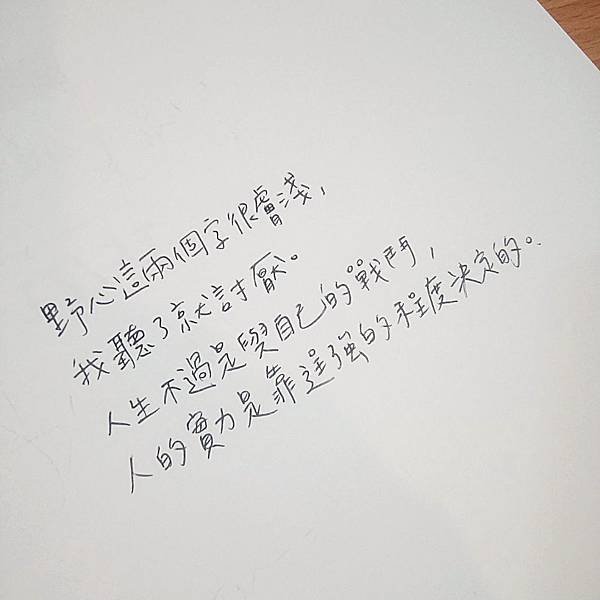 野心這兩個字很膚淺，
我聽了就討厭。
人生不過是與自己的戰鬥，
人的實力是靠逞強的程度決定的。